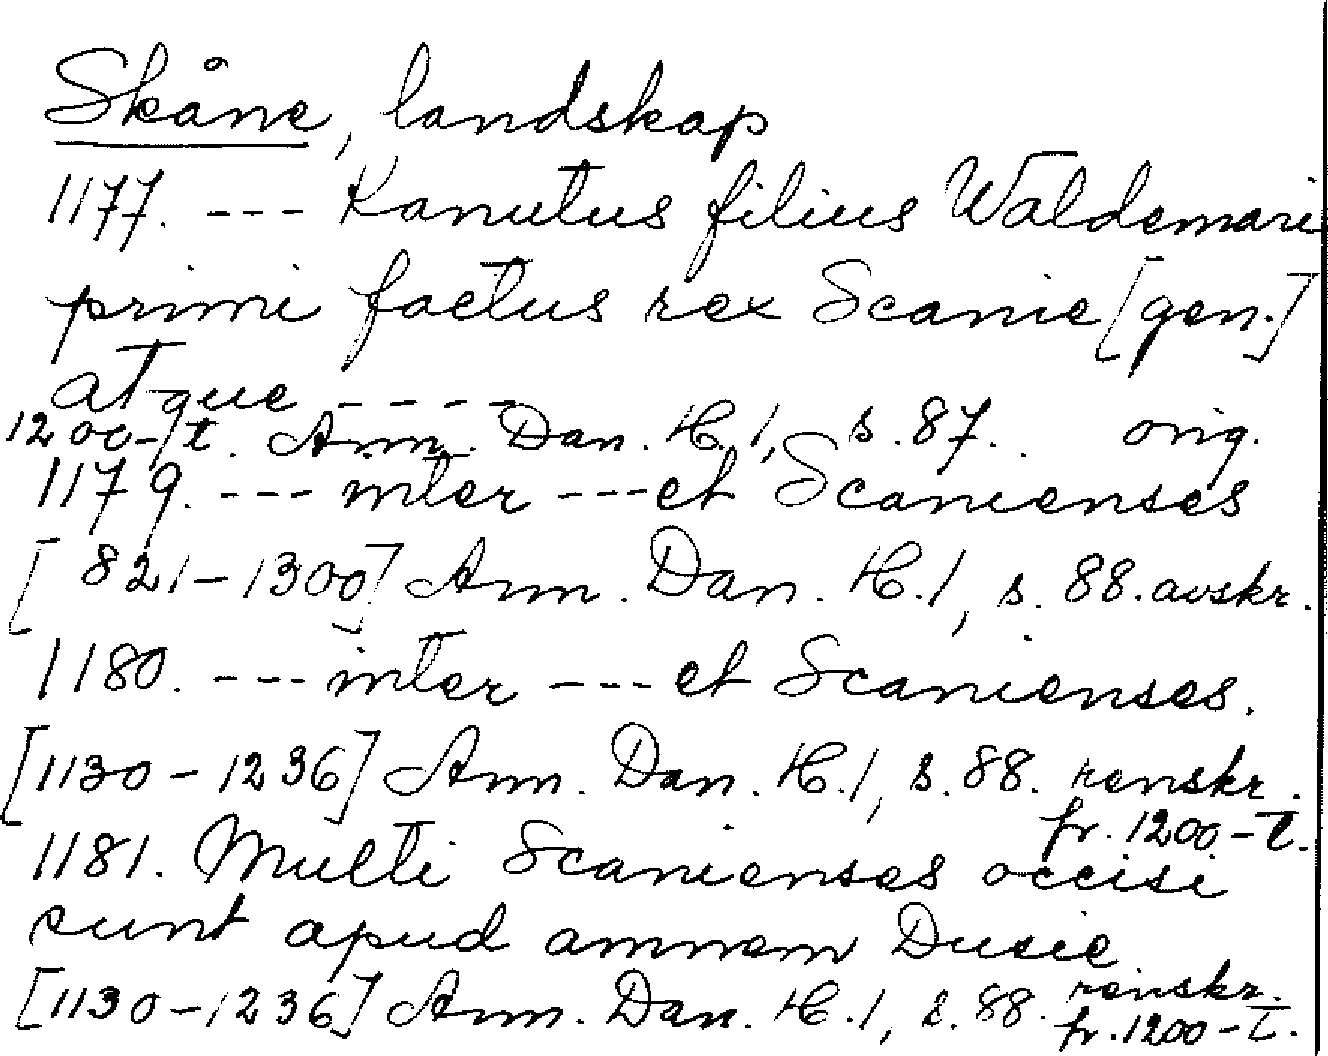 Skåne, landskap
1177. --- Kanutus filius Waldemari
primi factus rex Scanie [gen.]
atque ----
1200-t. Ann. Dan. H. 1, s. 87. orig.
1179. --- inter --- et Scanienses
[821-1300] Ann. Dan. H. 1, s. 88. avskr.
1180. --- inter --- et Scanienses.
[1130-1236] Ann. Dan. H. 1, s. 88. renskr.
fr. 1200-t.
1181. Multi Scanienses occisi
sunt apud amnem Dusie
[1130-1236] Ann. Dan. H. 1, s. 88. renskr.
fr. 1200-t.